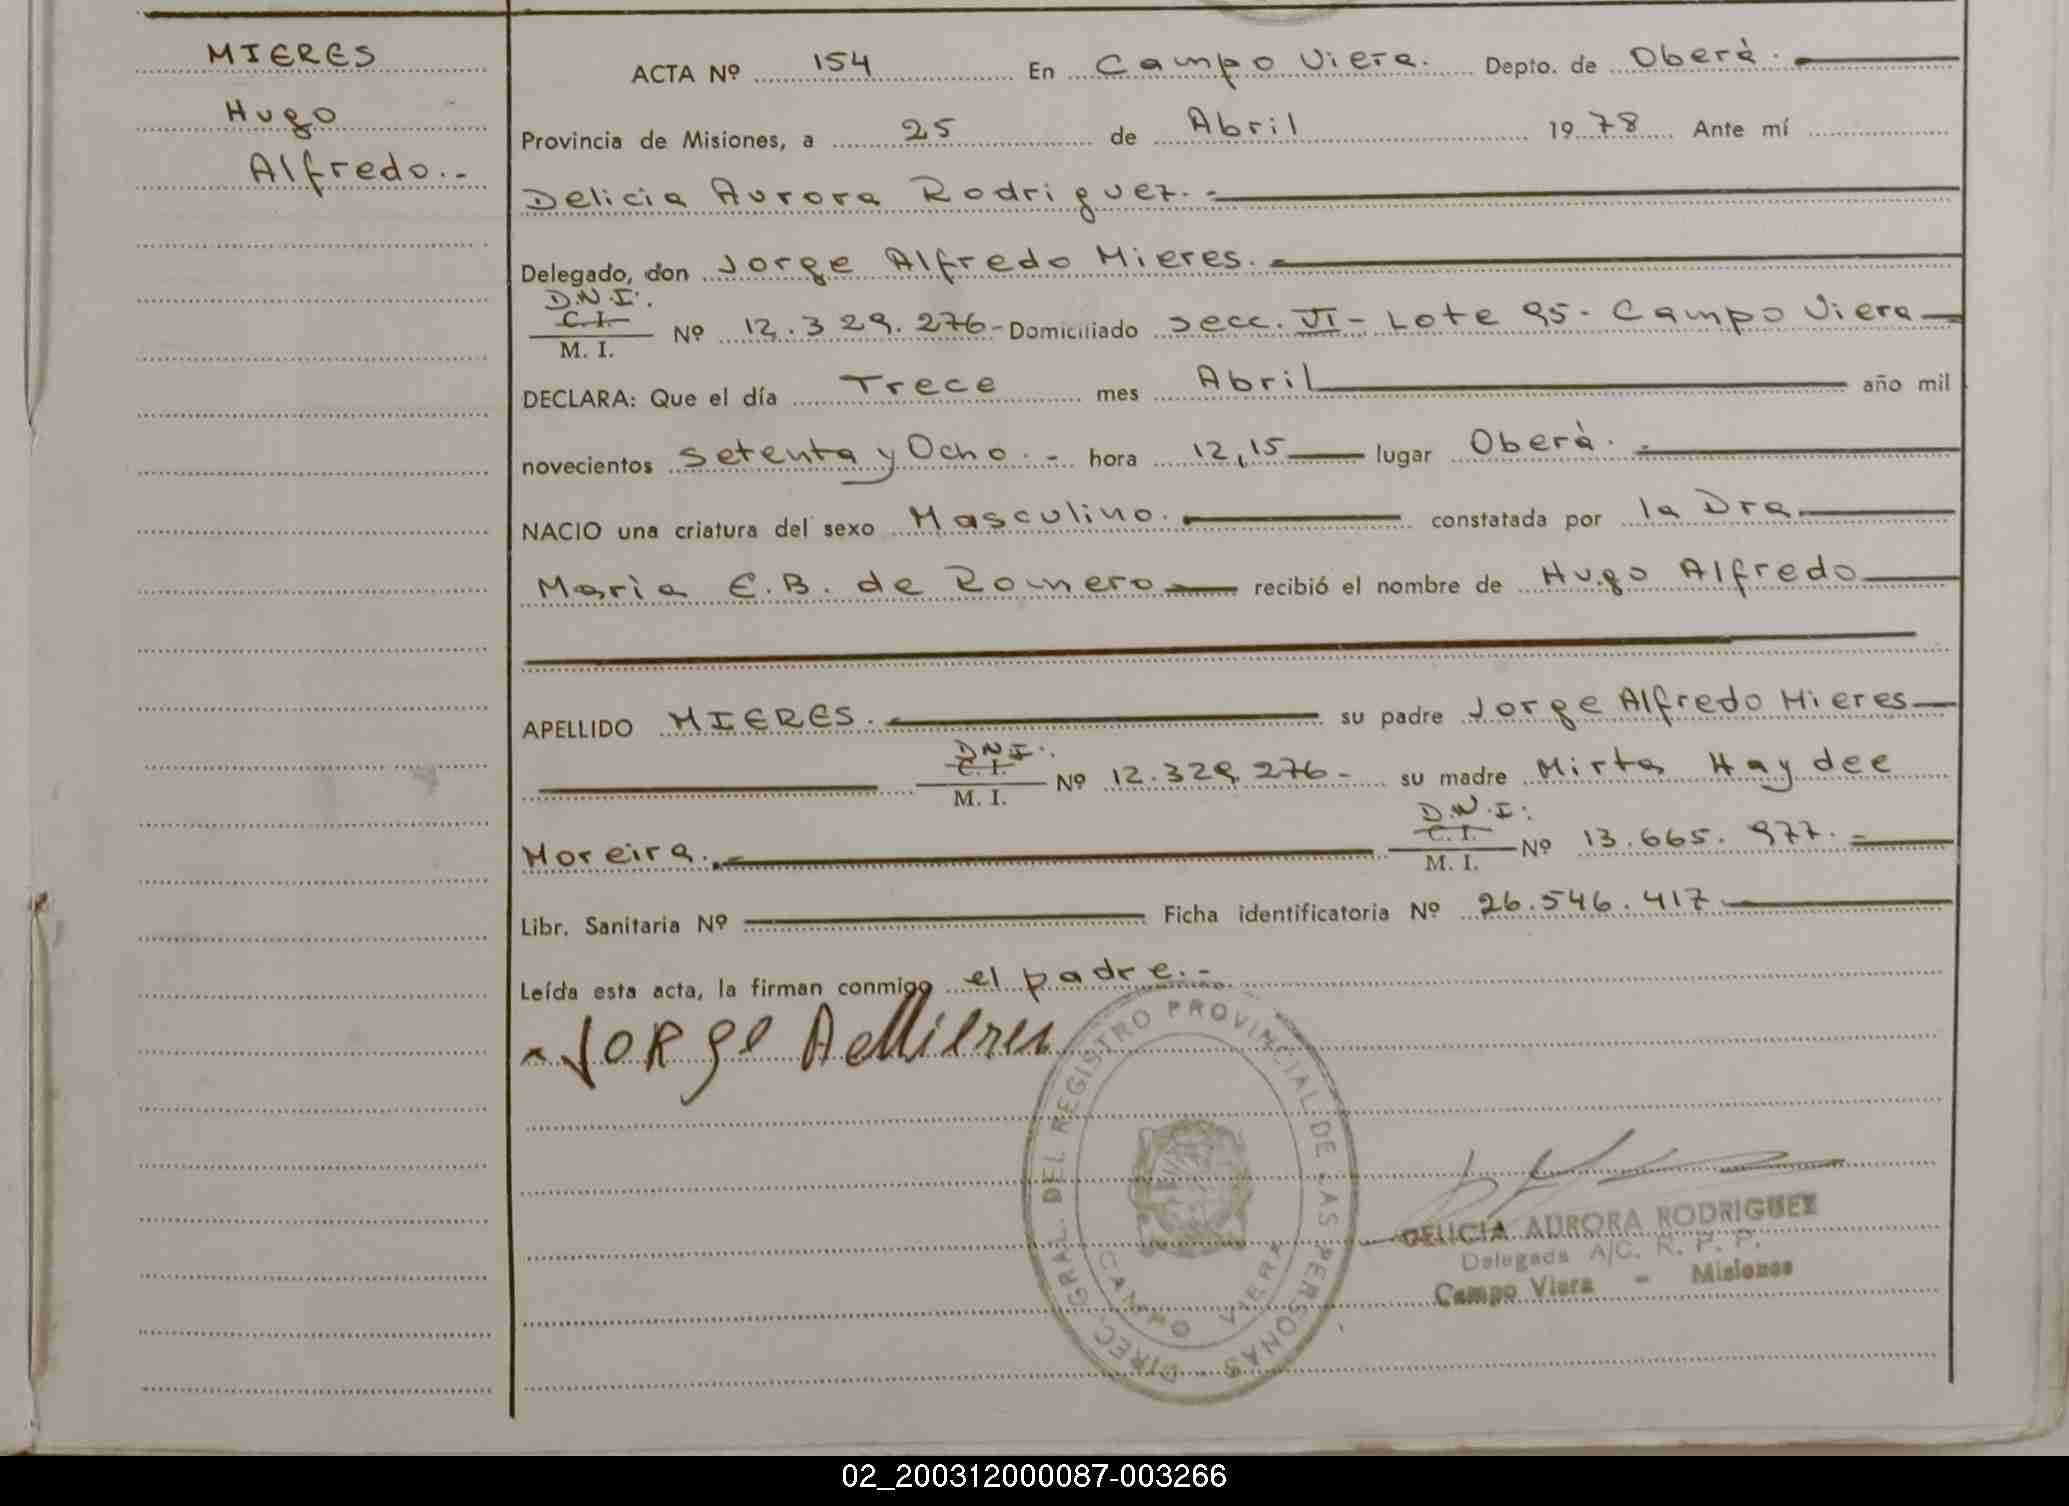 MIERES
Hugo
Alfredo.-
ACTA Nº 154 En Campo Viera. Depto. de Oberà.
Provincia de Misiones, a 25 de Abril 1978 Ante mí
Delicia Aurora Rodriguez.-
Delegado, don Jorge Alfredo Mieres.
D.N.I.
C. I.
M. I. Nº 12.329.276- Domiciliado secc. VI - Lote 95- Campo Viera
DECLARA: Que el día Trece mes Abril año mil
novecientos setenta y Ocho.- hora 12,15 lugar Oberà.-
NACIO una criatura del sexo Masculino. constatada por la Dra
Maria E.B. de Romero recibió el nombre de Hugo Alfredo
APELLIDO MIERES. su padre Jorge Alfredo Mieres
D.N.I.
C. I.
M. I. Nº 12.329.276- su madre Mirta Haydee
Moreira.-
D.N.I.
C. I.
M. I. Nº 13.665.977.-
Libr. Sanitaria Nº Ficha identificatoria Nº 26.546.417
Leída esta acta, la firman conmigo el padre.-
Jorge A Mieres
DIREC. GRAL. DEL REGISTRO PROVINCIAL DE LAS PERSONAS
CAMPO VIERA
DELICIA AURORA RODRIGUEZ
Delegada A/C. R. P. P.
Campo Viera - Misiones
02_200312000087-003266